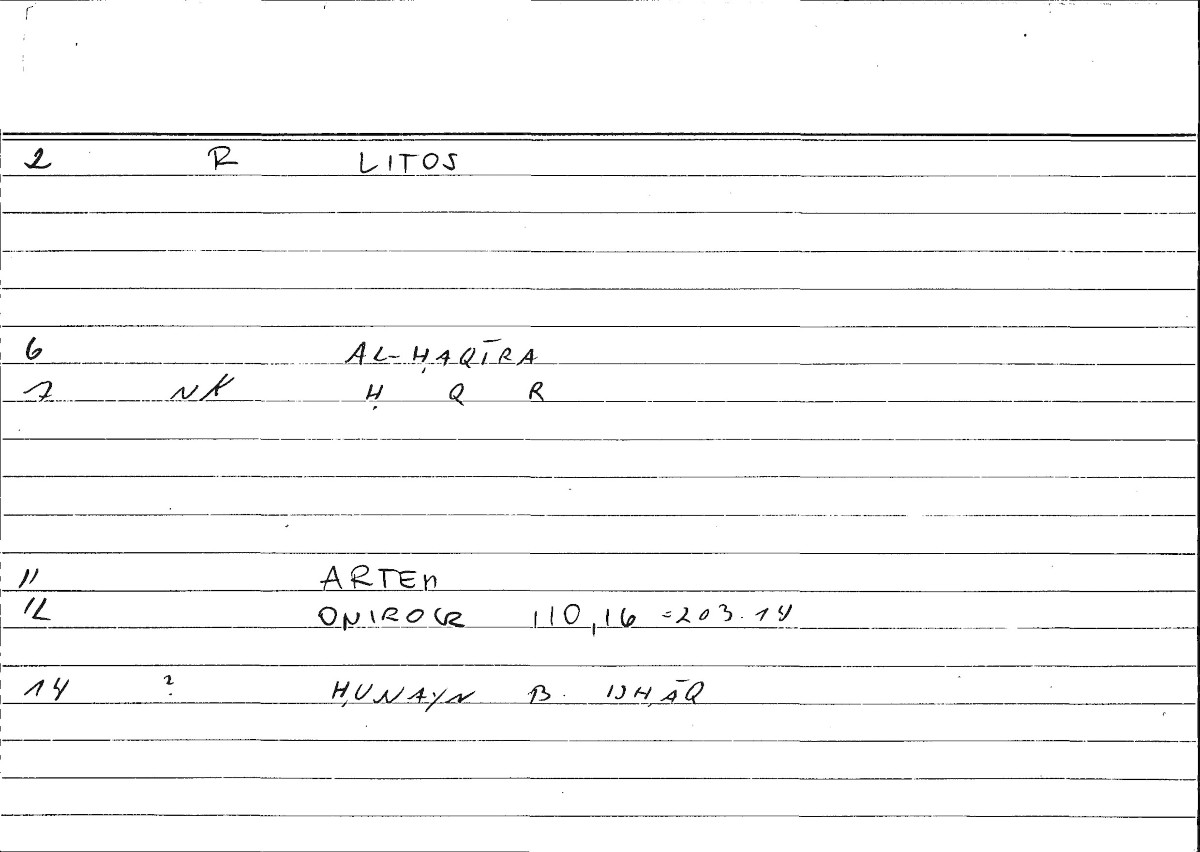 2 R LITOS
6 AL-ḤAQĪRA
7 NK Ḥ Q R
11 ARTEM
12 ONIROCR 110,16 =203.14
14 ? ḤUNAYN B. ISḤĀQ